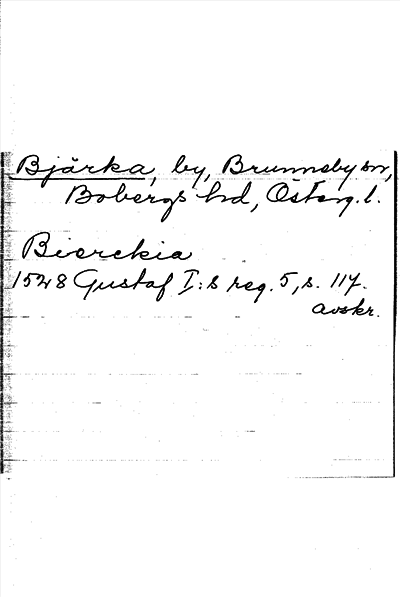 Bjärka, by, Brunneby sn,
Bobergs hd, Österg. l.
Bierckia
1528 Gustaf I:s reg. 5, s. 117.
avskr.